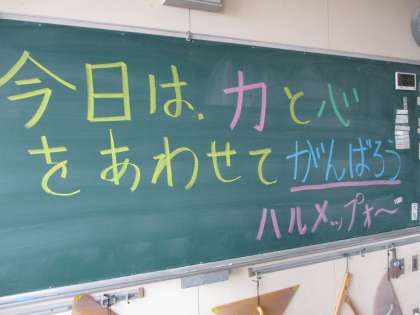 今日は、力と心
をあわせてがんばろう
ハルメッポォ〜